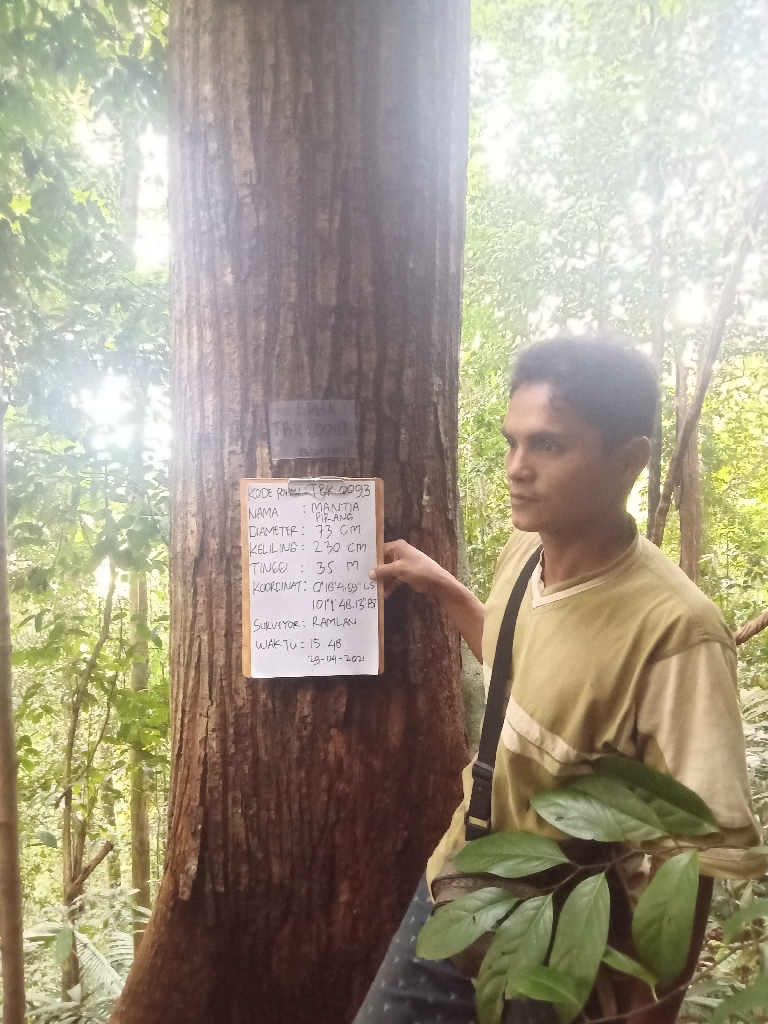 LPHA
TBK 0093
KODE POHON : TBK 0093
NAMA : MANTIA
PIRANG
DIAMETER : 73 CM
KELILING : 230 CM
TINGGI : 35 M
KOORDINAT : 0°18'4.59" LS
101°1'48.13" BT
SURVEYOR : RAMLAN
WAKTU : 15 48
29-04-2021